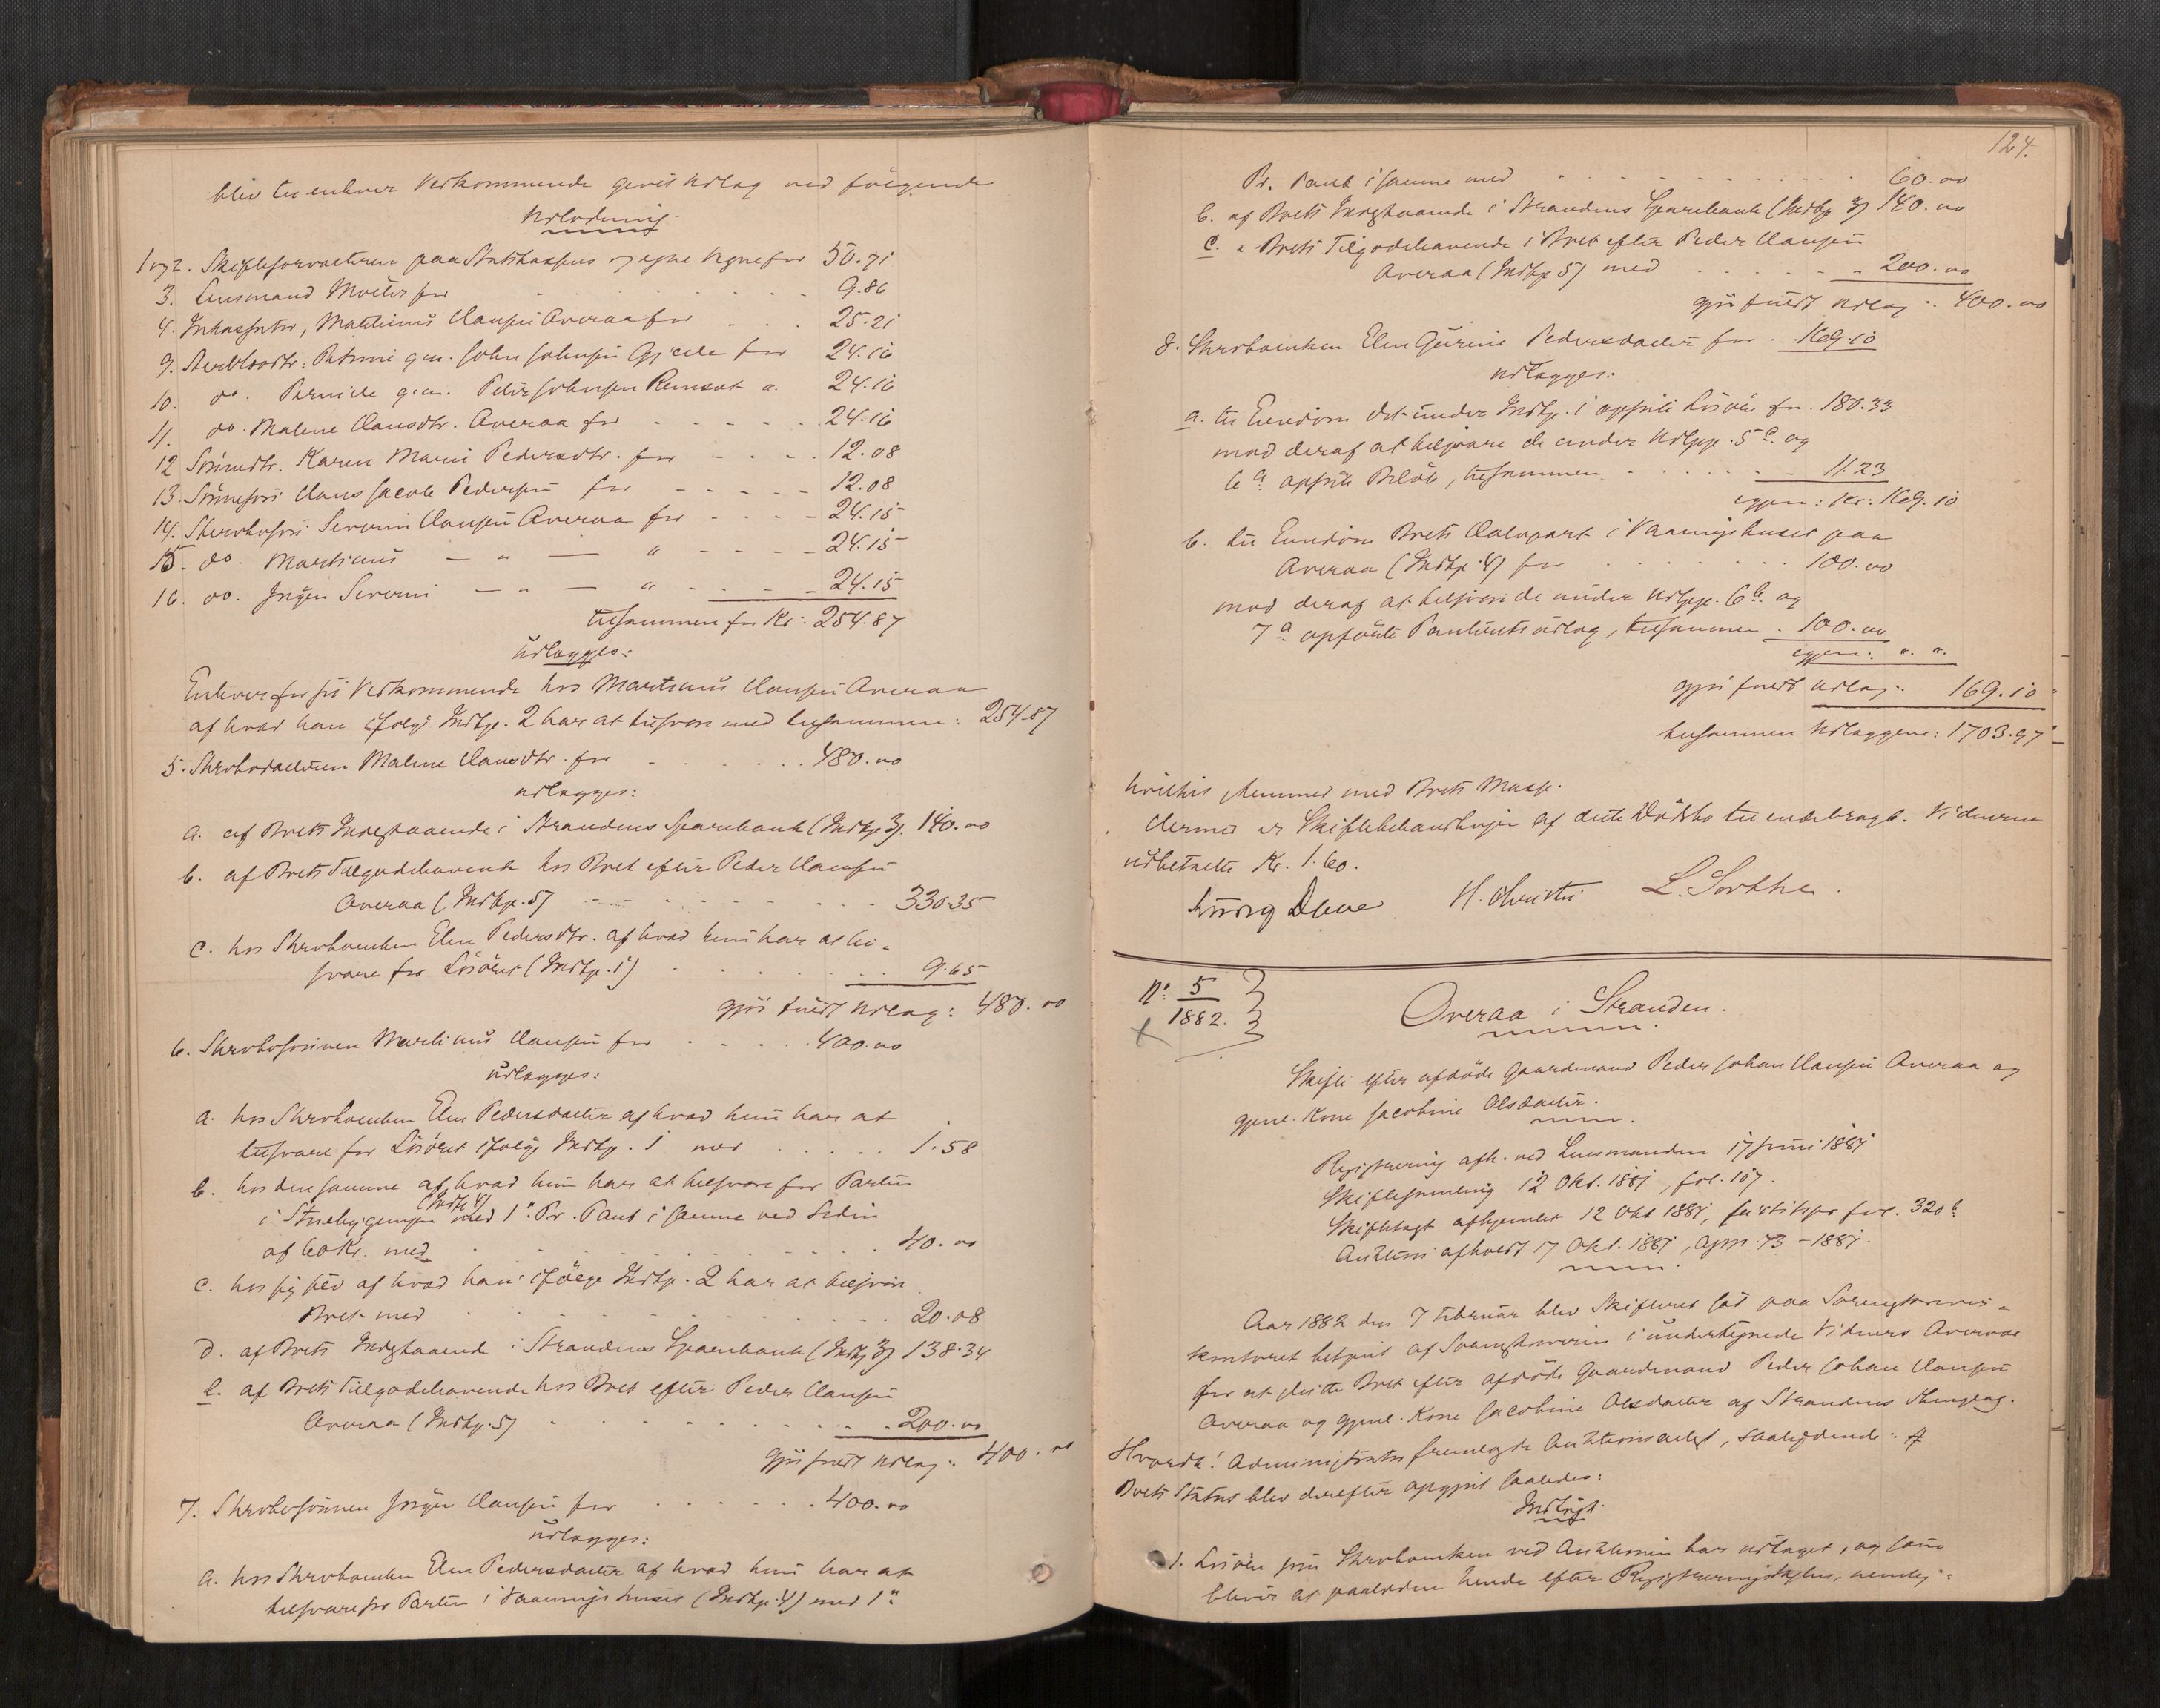 blev til enhver Vedkommende givet Udlæg ved følgende
Udlodning.
1 og 2. Skifteforvalteren paa Statskassens og egne Vegne for 50.71
3. Lensmand Molter for 9.86
4. Inkassator, Martinus Clausen Overaa for 25.21
9. Sterbosdtr: Petrine g.m. John Johnsen Gjerde for 24.16
10. do. Pernille g.m. Peder Johnsen a. 24.16
11. do. Malene Clausdtr. Overaa for 24.16
12 Sønnedtr. Karen Marie Pedersdtr. for 12.08
13. Sønnesøn Claus Jacob Pedersen for 12.08
14. Sterbosøn Severin Clausen Overaa for 24.15
15. do. Martinus — " — " 24.15
16. do. Jørgen Severin — " — " 24.15
tilsammen for Kr: 254.87
Udlægges:
Enhver for sit Vedkommende hos Martinus Clausen Overaa
af hvad han ifølge Indtp. 2 har at tilsvare med tilsammen: 254.87
5. Sterbodatteren Malene Clausdtr. for 480.00
udlægges:
a. af Boets Indestaaende i Strandens Sparebank (Indtp 3). 140.00
b. af Boets Tilgodehavende hos Boet efter Peder Clausen
Overaa (Indtp. 5) 330.35
c. hos Sterboenken Elen Pedersdtr. af hvad hun har at til=
svare for Løsøret (Indtp. 1) 9.65
gjør fuldt Udlæg: 480.00
6. Sterbosønnen Martinus Clausen for 400.00
udlægges:
a. hos Sterboenken Elen Pedersdatter af hvad hun har at
tilsvare for Løsøret ifølge Indtp. 1 med 1.58
b. hos den samme af hvad hun har at tilsvare for Parten
i Stuebygningen (Indtp 4) med 1ste Pr. Pant i samme ved Siden
af 60 Kr. med 40.00
c. hos sig selv af hvad han ifølge Indtp. 2 har at tilsvare
Boet med 20.08
d. af Boets Indestaaende i Strandens Sparebank (Indtp 3) 138.34
e. af Boets Tilgodehavende hos Boet efter Peder Clausen
Overaa (Indtp. 5) 200.00
gjør fuldt Udlæg: 400.00
7. Sterbosønnen Jørgen Clausen for 400.00
udlægges:
a. hos Sterboenken Elen Pedersdatter af hvad hun har at
tilsvare for Parten i Vaaningshuset (Indtp. 4) med 1ste
124.
Pr. Pant i samme med 60.00
b. af Boets Indestaaende i Strandens Sparebank (Indtp 3) 140.00
c. " Boets Tilgodehavende i Boet efter Peder Clausen
Overaa (Indtp 5) med 200.00
gjør fuldt Udlæg: 400.00
8. Sterboenken Elen Gurine Pedersdatter for 169.10
udlægges:
a. til Eiendom det under Indtp. 1 opførte Løsøre for 180.33
mod deraf at tilsvare de under Udlpp. 5 c. og
6 a. opførte Beløb, tilsammen 11.23
igjen: Kr: 169.10
b. til Eiendom Boets Halvpart i Vaaningshuset paa
Overaa (Indtp. 4) for 100.00
mod deraf at tilsvare de under Udlpp. 6 b. og
7 a opførte Panteretsudlæg, tilsammen 100.00
igjen: " "
gjør fuldt Udlæg: 169.10
tilsammen Udlæggene: 1703.97
hvilket stemmer med Boets Masse.
Hermed er Skiftebehandlingen af dette Dødsbo tilendebragt. Vidnerne
udbetalte Kr. 1.60.
H. Christie L. Sorthe.
No. 5
1882.
Overaa i Stranden.
Skifte efter afdøde Gaardmand Peder Johan Clausen Overaa og
gjenl. Kone Jacobine Olsdatter.
Registrering afh. ved Lensmanden 17 Juni 1881
Skiftesamling 12 Okt. 1881, fol. 107.
Skiftetagt afhjemlet 12 Okt 1881, fol. 320 b.
Auktion afholdt 17 Okt. 1881, 73 - 1881.
Aar 1882 den 7 Februar blev Skifteret sat paa Sorenskriver=
kontoret betjent af Sorenskriveren i undertegnede Vidners Overvær
for at slutte Boet efter afdøde Gaardmand Peder Johan Clausen
Overaa og gjenl. Kone Jacobine Olsdatter af Strandens Thinglag.
Hvorda! Administrator fremlagde Auktions, saalydende: #
Boets Status blev derefter opgjort saaledes:
Indtægt.
1. Løsøre som Sterboenken ved Auktionen har udtaget, og som
bliver at paalodde hende efter Registreringstaxten, nemlig: